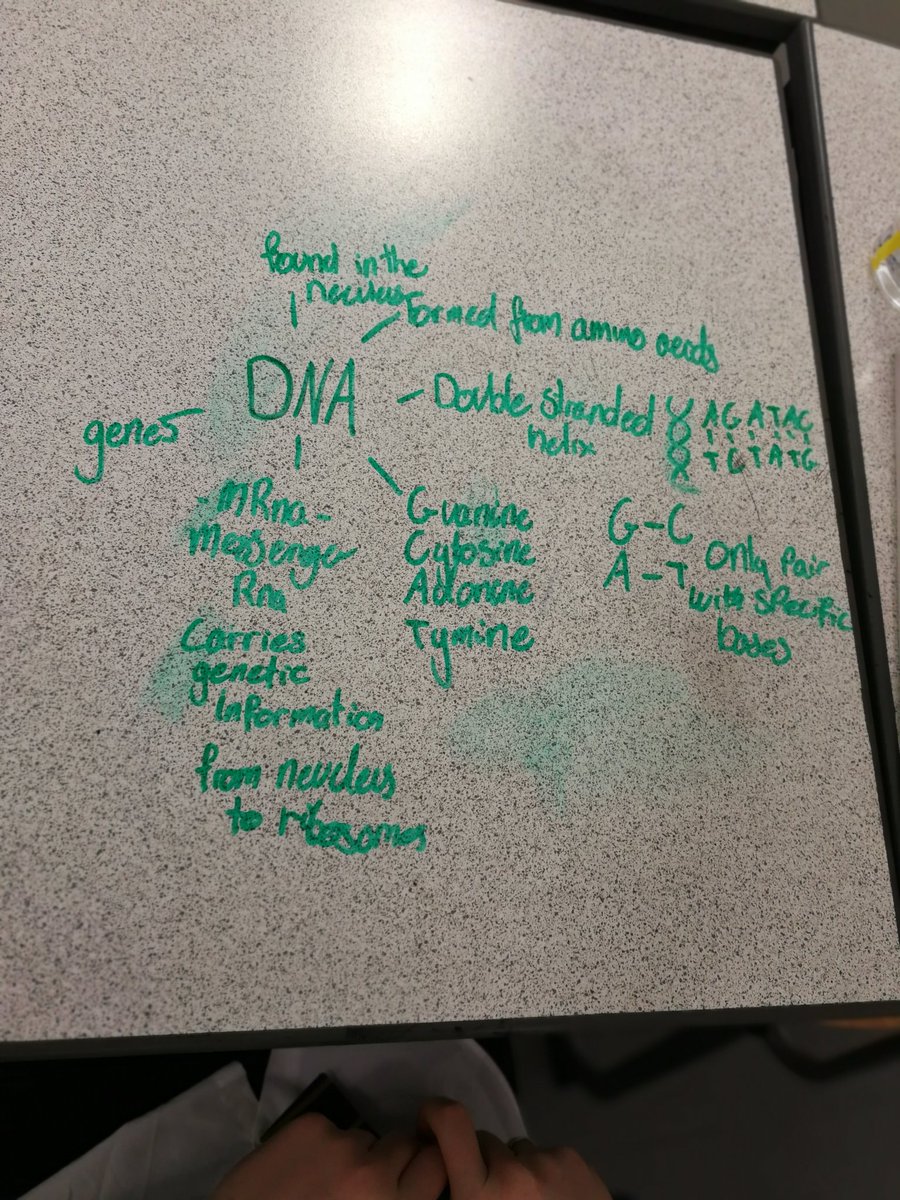 found in the
neculus
formed from amino acids
DNA
Double stranded
helix
AGATAC
TCTATG
genes
MRna -
Messenger
Rna
Carries
genetic
Information
from neucleus
to ribosomes
Guanine
Cytosine
Adonene
Tymine
G-C
A-T
only pair
with specific
bases